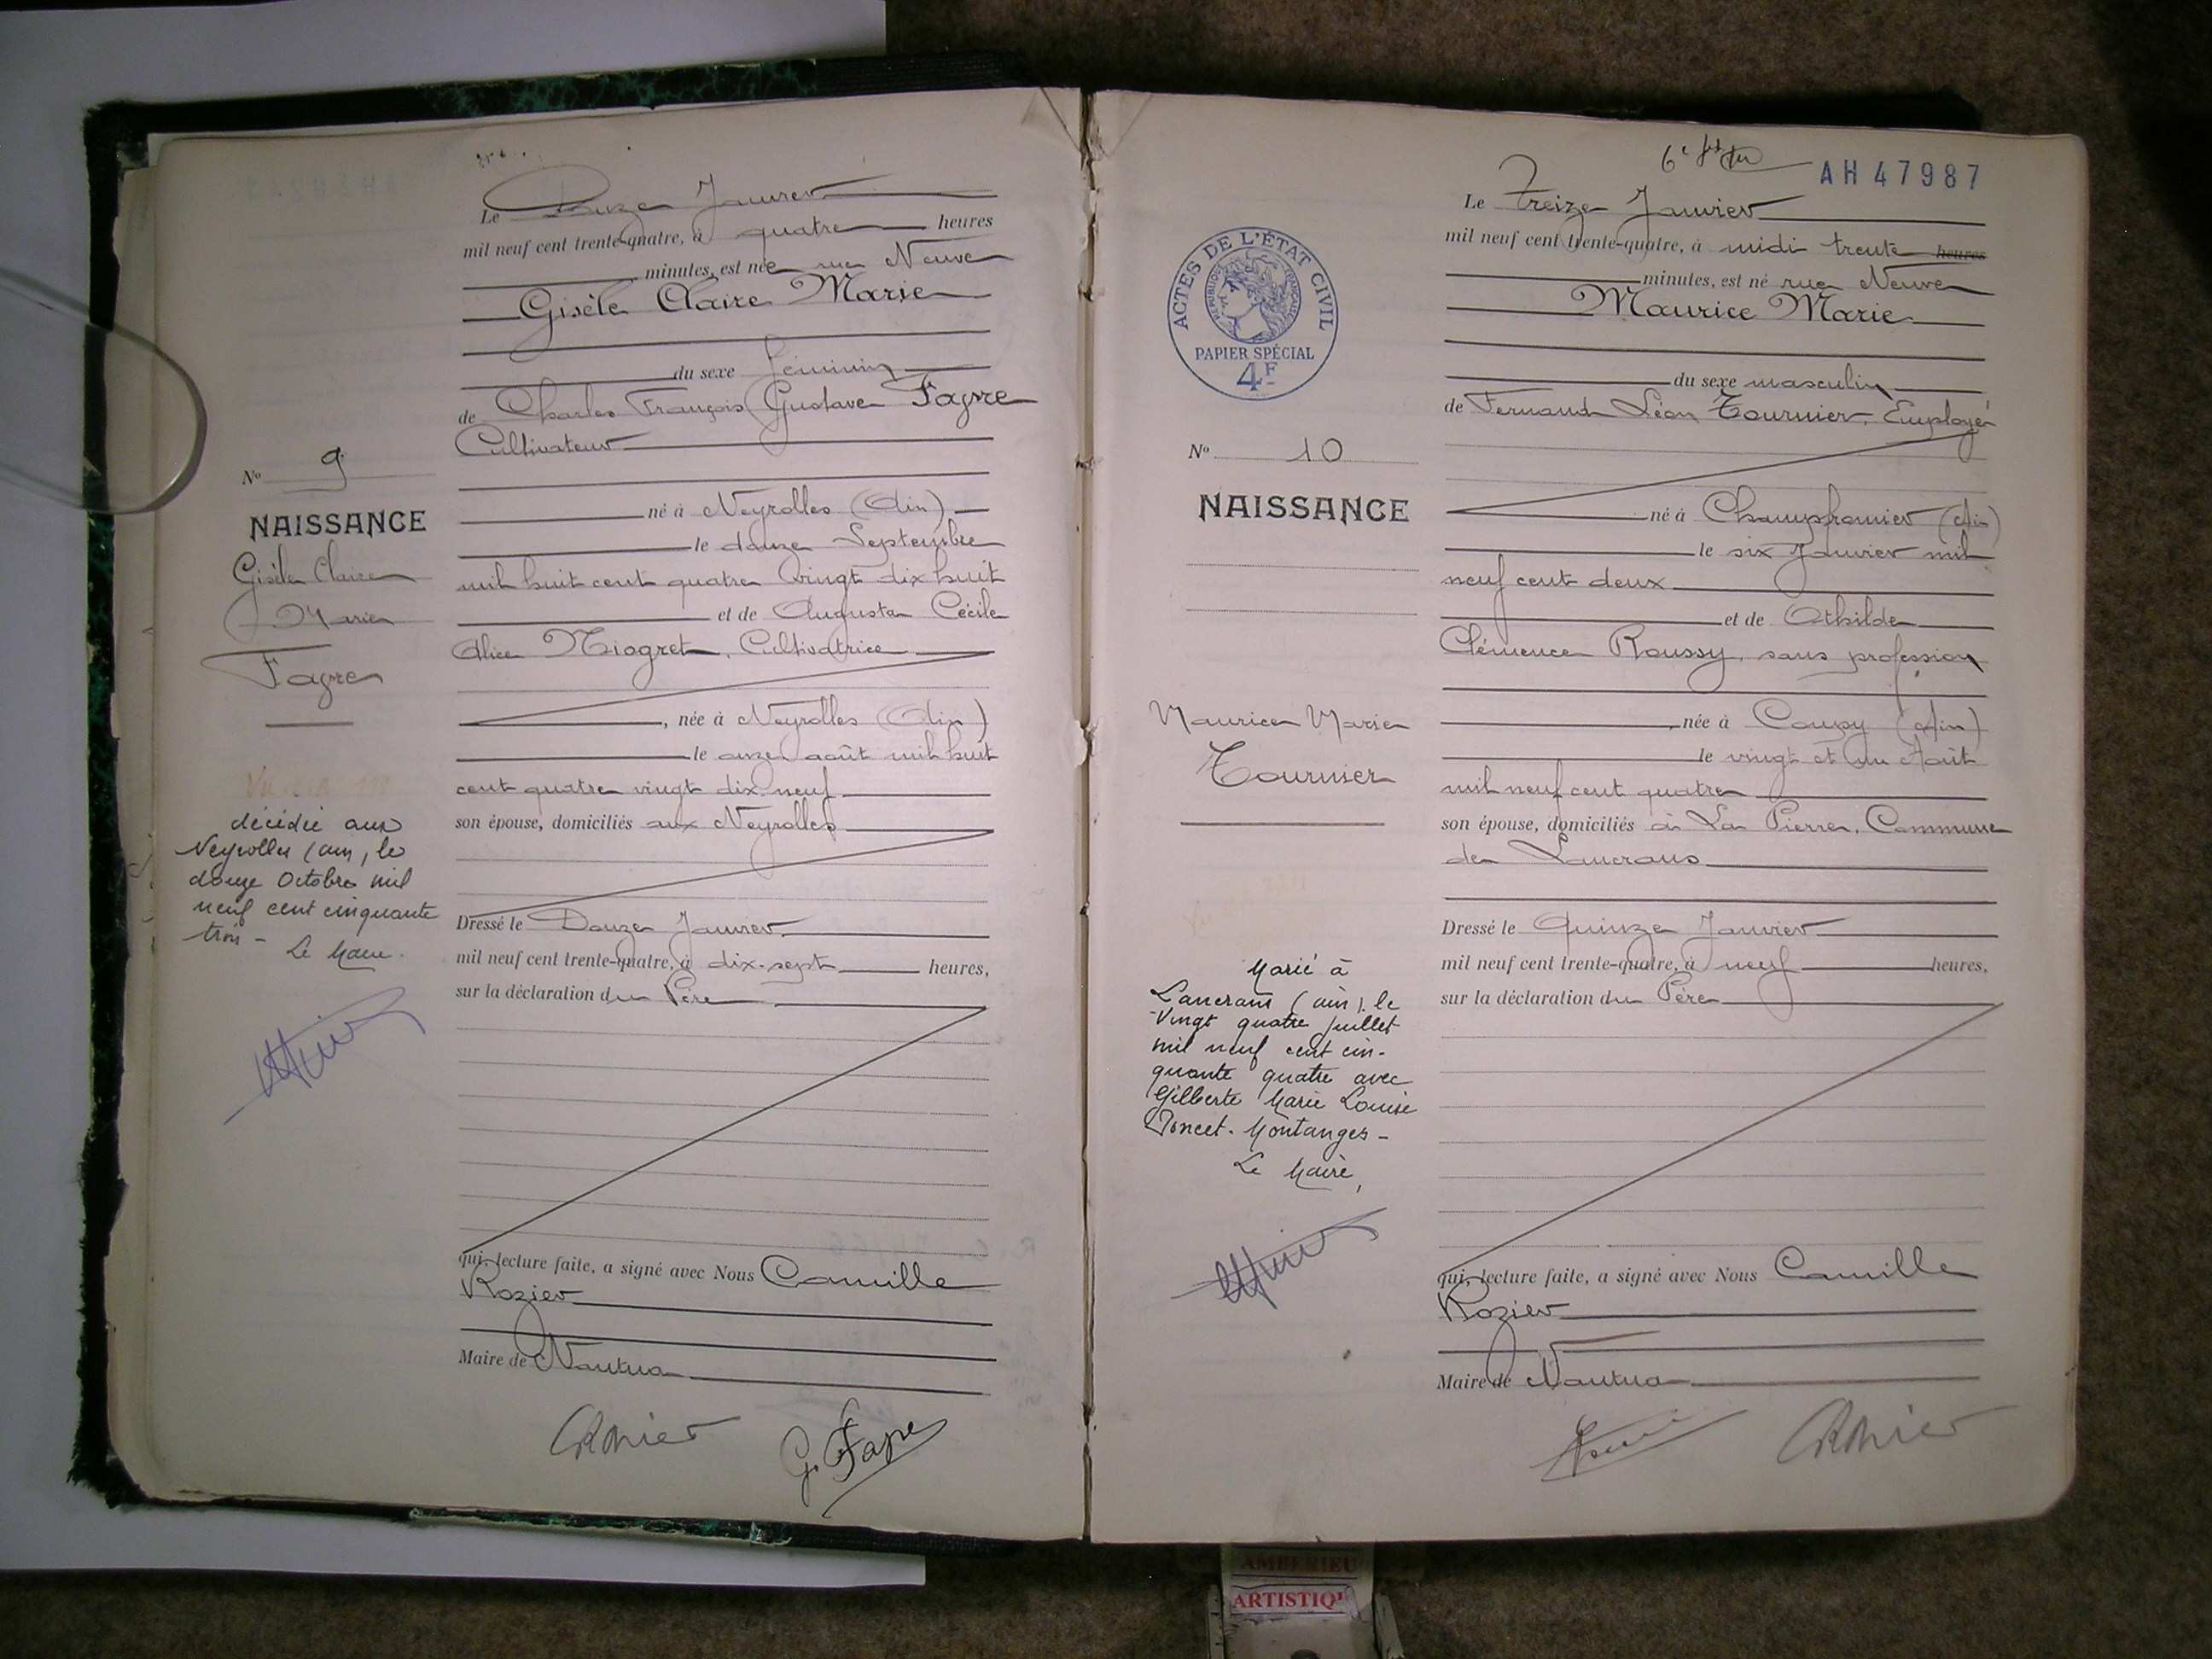 Le Douze Janvier
mil neuf cent trente-quatre, à quatre heures
minutes, est née rue Neuve
Gisèle Claire Marie
du sexe féminin
de Charles François Gustave Fayre
Cultivateur
né à Neyrolles (Ain)
le douze Septembre
mil huit cent quatre vingt dix huit
et de Augusta Cécile
Alice Miogret, Cultivatrice
, née à Neyrolles (Ain)
le onze août mil huit
cent quatre vingt dix-neuf
son épouse, domiciliés aux Neyrolles
Dressé le Douze Janvier
mil neuf cent trente-quatre, à dix-sept heures,
sur la déclaration du Père
qui, lecture faite, a signé avec Nous Camille
Rozier
Maire de Nantua
G. Fayre
No 9
NAISSANCE
Gisèle Claire
Marie
Fayre
décédée aux
Neyrolles (ain, le
douze Octobre mil
neuf cent cinquante
trois -
Le Maire.
AH47987
Le Treize Janvier
mil neuf cent trente-quatre, à midi trente heures
minutes, est né rue Neuve
Maurice Marie
du sexe masculin
de Fernand Léon Tournier, Employé
né à Champfromier (Ain)
le six Janvier mil
neuf cent deux
et de Othilde
Clémence Roussy, sans profession
née à Coupy (Ain)
le vingt et un Août
mil neuf cent quatre
son épouse, domiciliés à La Pierre, Commune
de Lancrans
Dressé le Quinze Janvier
mil neuf cent trente-quatre, à neuf heures,
sur la déclaration du Père
qui, lecture faite, a signé avec Nous Camille
Rozier
Maire de Nantua
ACTES DE L'ÉTAT CIVIL
RÉPUBLIQUE FRANÇAISE
PAPIER SPÉCIAL
4F
No 10
NAISSANCE
Maurice Marie
Tournier
Marié à
Lancrans (ain), le
Vingt quatre juillet
mil neuf cent cin-
quante quatre avec
Gilberte Marie Louise
Poncet-Montanges -
Le Maire,
AMBERIEU
ARTISTIQU